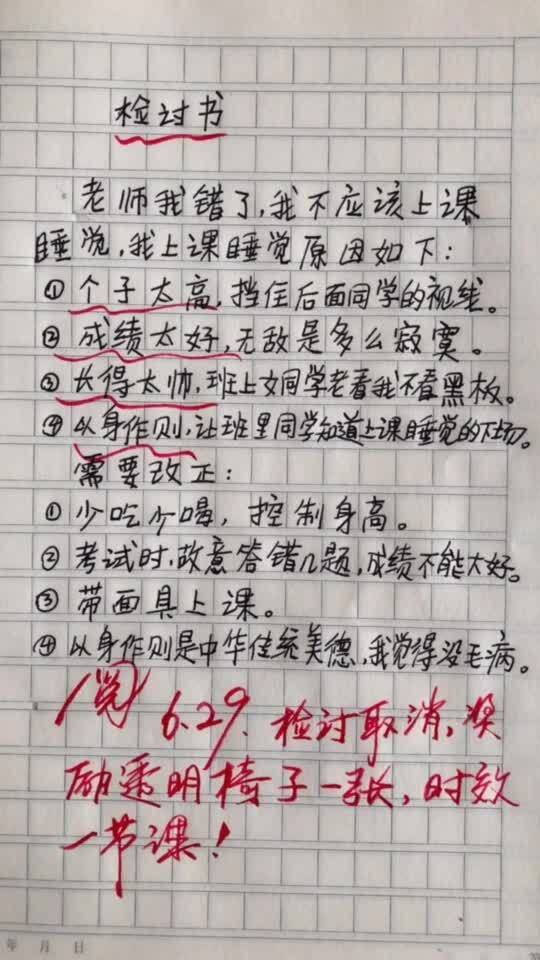 检讨书
老师我错了,我不应该上课
睡觉,我上课睡觉原因如下:
①个子太高,挡住后面同学的视线。
②成绩太好,无敌是多么寂寞。
③长得太帅,班上女同学老看我不看黑板。
④以身作则,让班里同学知道上课睡觉的下场。
需要改正:
①少吃少喝,控制身高。
②考试时,故意答错几题,成绩不能太好。
③带面具上课。
④以身作则是中华传统美德,我觉得没毛病。
阅 6.29. 检讨取消,奖
励透明椅子一张,时效
一节课!
年 月 日